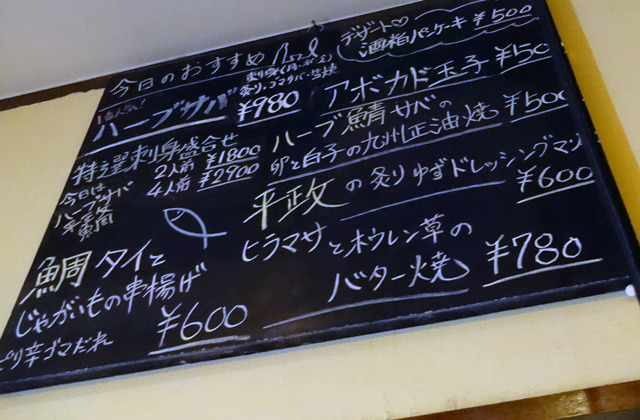 今日のおすすめ
ハーブサバ ¥980
特選刺身盛合せ
2人前 ¥1800
4人前 ¥2900
今日は
ハーブサバ
平政
真鯛
鯛 タイと
じゃがいもの串揚げ
ピリ辛ゴマだれ ¥600
デザート♡
酒粕パンケーキ ¥500
アボカド玉子 ¥50
ハーブ鯖サバの
卵と白子の九州正油焼 ¥500
平政の炙りゆずドレッシングマリ
¥600
ヒラマサとホウレン草の
バター焼 ¥780